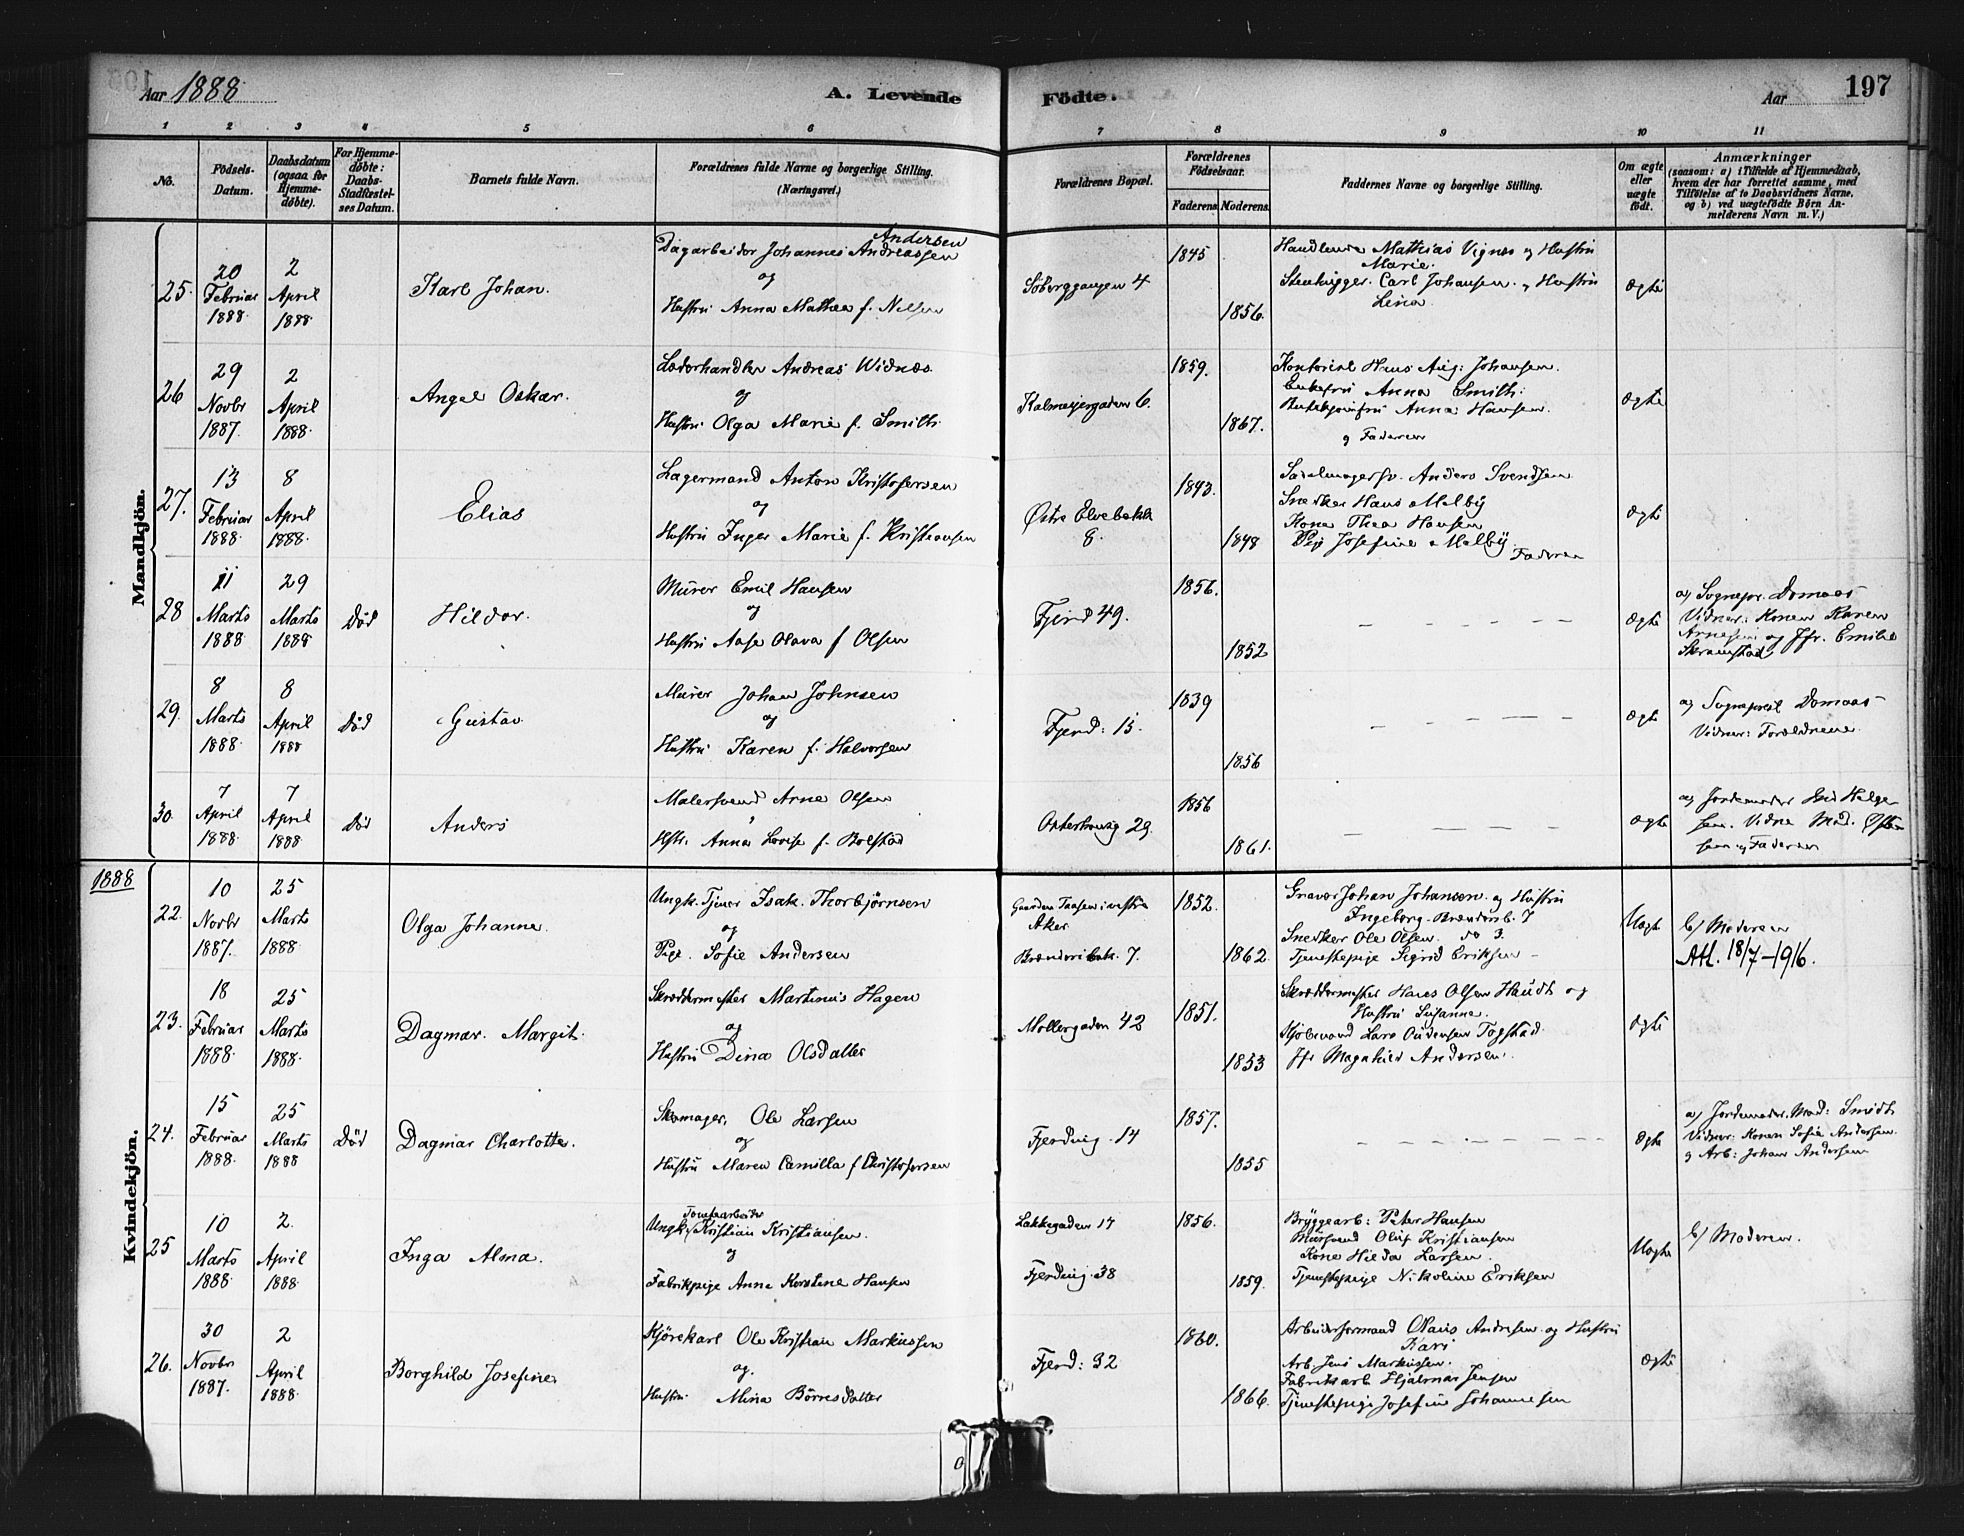 Aar 1888. A. Levende Födte. Aar 197
1 2 3 4 5 6 7 8 9 10 11
No.
Födsels-Datum.
Daabsdatum (ogsaa for Hjemme-döbte).
For Hjemme-döbte: Daabs-Stadfæstel-ses Datum.
Barnets fulde Navn.
Forældrenes fulde Navne og borgerlige Stilling.
(Næringsvei.)
Forældrenes Bopæl.
Forældrenes Födselsaar.
Faderens. Moderens.
Faddernes Navne og borgerlige Stilling.
Om ægte eller uægte födt.
Anmærkninger
(saasom: a) i Tilfælde af Hjemmedaab,
hvem der har forrettet samme, med
Tilföielse af to Daabsvidners Navne,
og b) ved uægtefödte Börn An-
melderens Navn m. V.)
Mandkjön.
25. 20 Februar 1888. 2 April 1888. Karl Johan.
Dagarbeider Johannes Andreassen Andersen
og
Hustru Anna Mathea f. Nilsen
Söberggangen 4 1845 1856.
Handlende Mathias Vignes og Hustru
Marie.
Stenhugger. Carl Johansen. og Hustru
Lina.
Ægte
26 29 Novbr 1887. 2 April 1888. Angel Oskar.
Læderhandler Andreas Widnæs
og
Hustru Olga Marie f. Smith.
Kalmeyergaden 6. 1859. 1867.
Kontorist Hans Aug: Johansen.
Enkefru Anna Smith.
Anna Hansen.
og Faderen
Ægte
27. 13 Februar 1888. 8 April 1888. Elias
Lagermand Anton Kristofersen
og
Hustru Inger Marie f. Kristiansen
Østre Elvebakke 8. 1843. 1848
Sadelmagersv. Anders Svendsen
Snedker Hans Melby
Kone Thea Hansen
Pige Josefine Melby.
Faderen
Ægte
28 11 Marts 1888 29 Marts 1888 Död Hildor.
Murer Emil Hansen
og
Hustru Aase Olava f Olsen
Fjerd 49. 1856. 1852
Ægte
a) Sognepr. Domaas
Vidner: Konen Karen
Arnesen og Jfr. Emilie
Skramstad
29. 8 Marts 1888. 8 April 1888 Död Gustav
Murer Johan Johnsen
og
Hustru Karen f. Halvorsen
Fjerd: 15. 1839 1856
Ægte
a) Domaas
Vidner: Forældrene.
30. 7 April 1888. 7 April 1888 Död Anders
Malersvend Arne Olsen
Hstr. Anna Lovise f. Bolstad
29. 1856 1861.
Ægte
a) Jordemoder Helge-
sen. Vidne Mad.
sen og Faderen
1888
Kvindekjön.
22. 10 Novbr 1887. 25 Marts 1888. Olga Johanne.
Ungk. Tjener Isak. Thorbjörnsen
og
Pige. Sofie Andersen
Gaarden Taasen i vestre
Aker
Brenneribak. 7.
1852. 1862.
Graver Johan Johansen. og Hustru
Ingeborg. Brenderib. 7
Snedker Ole Olsen. do 3.
Tjenestepige Sigrid Eriksen
Uægte
b/ Moderen
Att. 18/7-1916.
23. 18 Februar 1888. 25 Marts 1888. Dagmar. Margit.
Skræddermester Martinus Hagen
og
Hustru Dina Olsdatter
Mollergaden 42 1851. 1853
Skræddermester Hans Olsen og
Hustru Susanne.
Lars Gudensen Togstad.
Jfr Andersen.
Ægte
24. 15 Februar 1888. 25 Marts 1888 Död Dagmar Charlotte.
Skomager. Ole Larsen
og
Hustru Maren Camilla f Christofersen
Fjerding. 14 1857. 1855
Ægte
a) Jordemoder. Mad: Smidt
Vidner: Konen Sofie Andersen.
og Arb: Johan Andersen
25 10 Marts 1888. 2. April 1888. Inga Alma.
Tomtearbeider
Ungk. Kristian Kristiansen.
og
Fabrikpige Anne Kerstine Hansen
Lakkegaden 17
Fjerding. 38
1856. 1859.
Bryggearb: Peter Hansen
Mursvend Oluf Kristiansen
Kone Hilda Larsen.
Tjenestepige Nikoline Eriksen
Uægte
b/ Moderen.
26. 30 Novbr 1887. 2 April 1888. Borghild Josefine
Kjörekarl Ole Kristian Markussen
og.
Hustru Mina Börresdatter
Fjerd: 32 1860. 1866.
Arbeidsformand Olaus Andresen og Hustru
Kari
Arb. Jens Markussen.
Fabriksarb Hjalmar Jensen
Tjenestepige Josefine Johannesen
Ægte